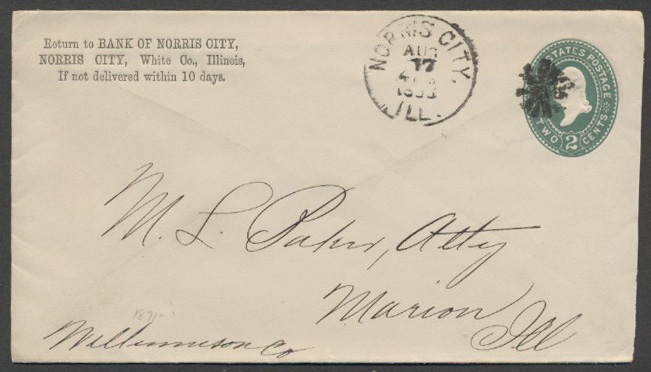 Return to BANK OF NORRIS CITY,
NORRIS CITY, White Co., Illinois,
If not delivered within 10 days.
NORRIS CITY,
AUG
17
ILL.
STATES POSTAGE
TWO 2 CENTS
M. L. Atty
Marion
Ill
Williamson Co